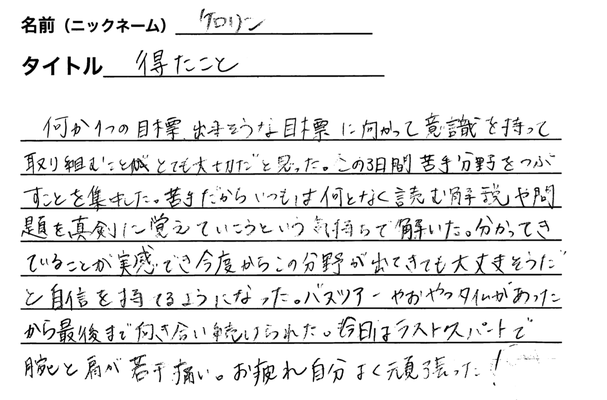 名前（ニックネーム） ケロリン
タイトル 得たこと
何か1つの目標、出来そうな目標に向かって意識を持って
取り組むことがとても大切だと思った。この3日間苦手分野をつぶ
すことを集中した。苦手だからいつもは何となく読む解説や問
題を真剣に覚えていこうという気持ちで解いた。分かってき
ていることが実感でき今度からこの分野が出てきても大丈夫そうだ
と自信を持てるようになった。バスツアーやおやつタイムがあった
から最後まで向き合い続けられた。今日はラストスパートで
腕と肩が若干痛い。お疲れ自分よく頑張った！